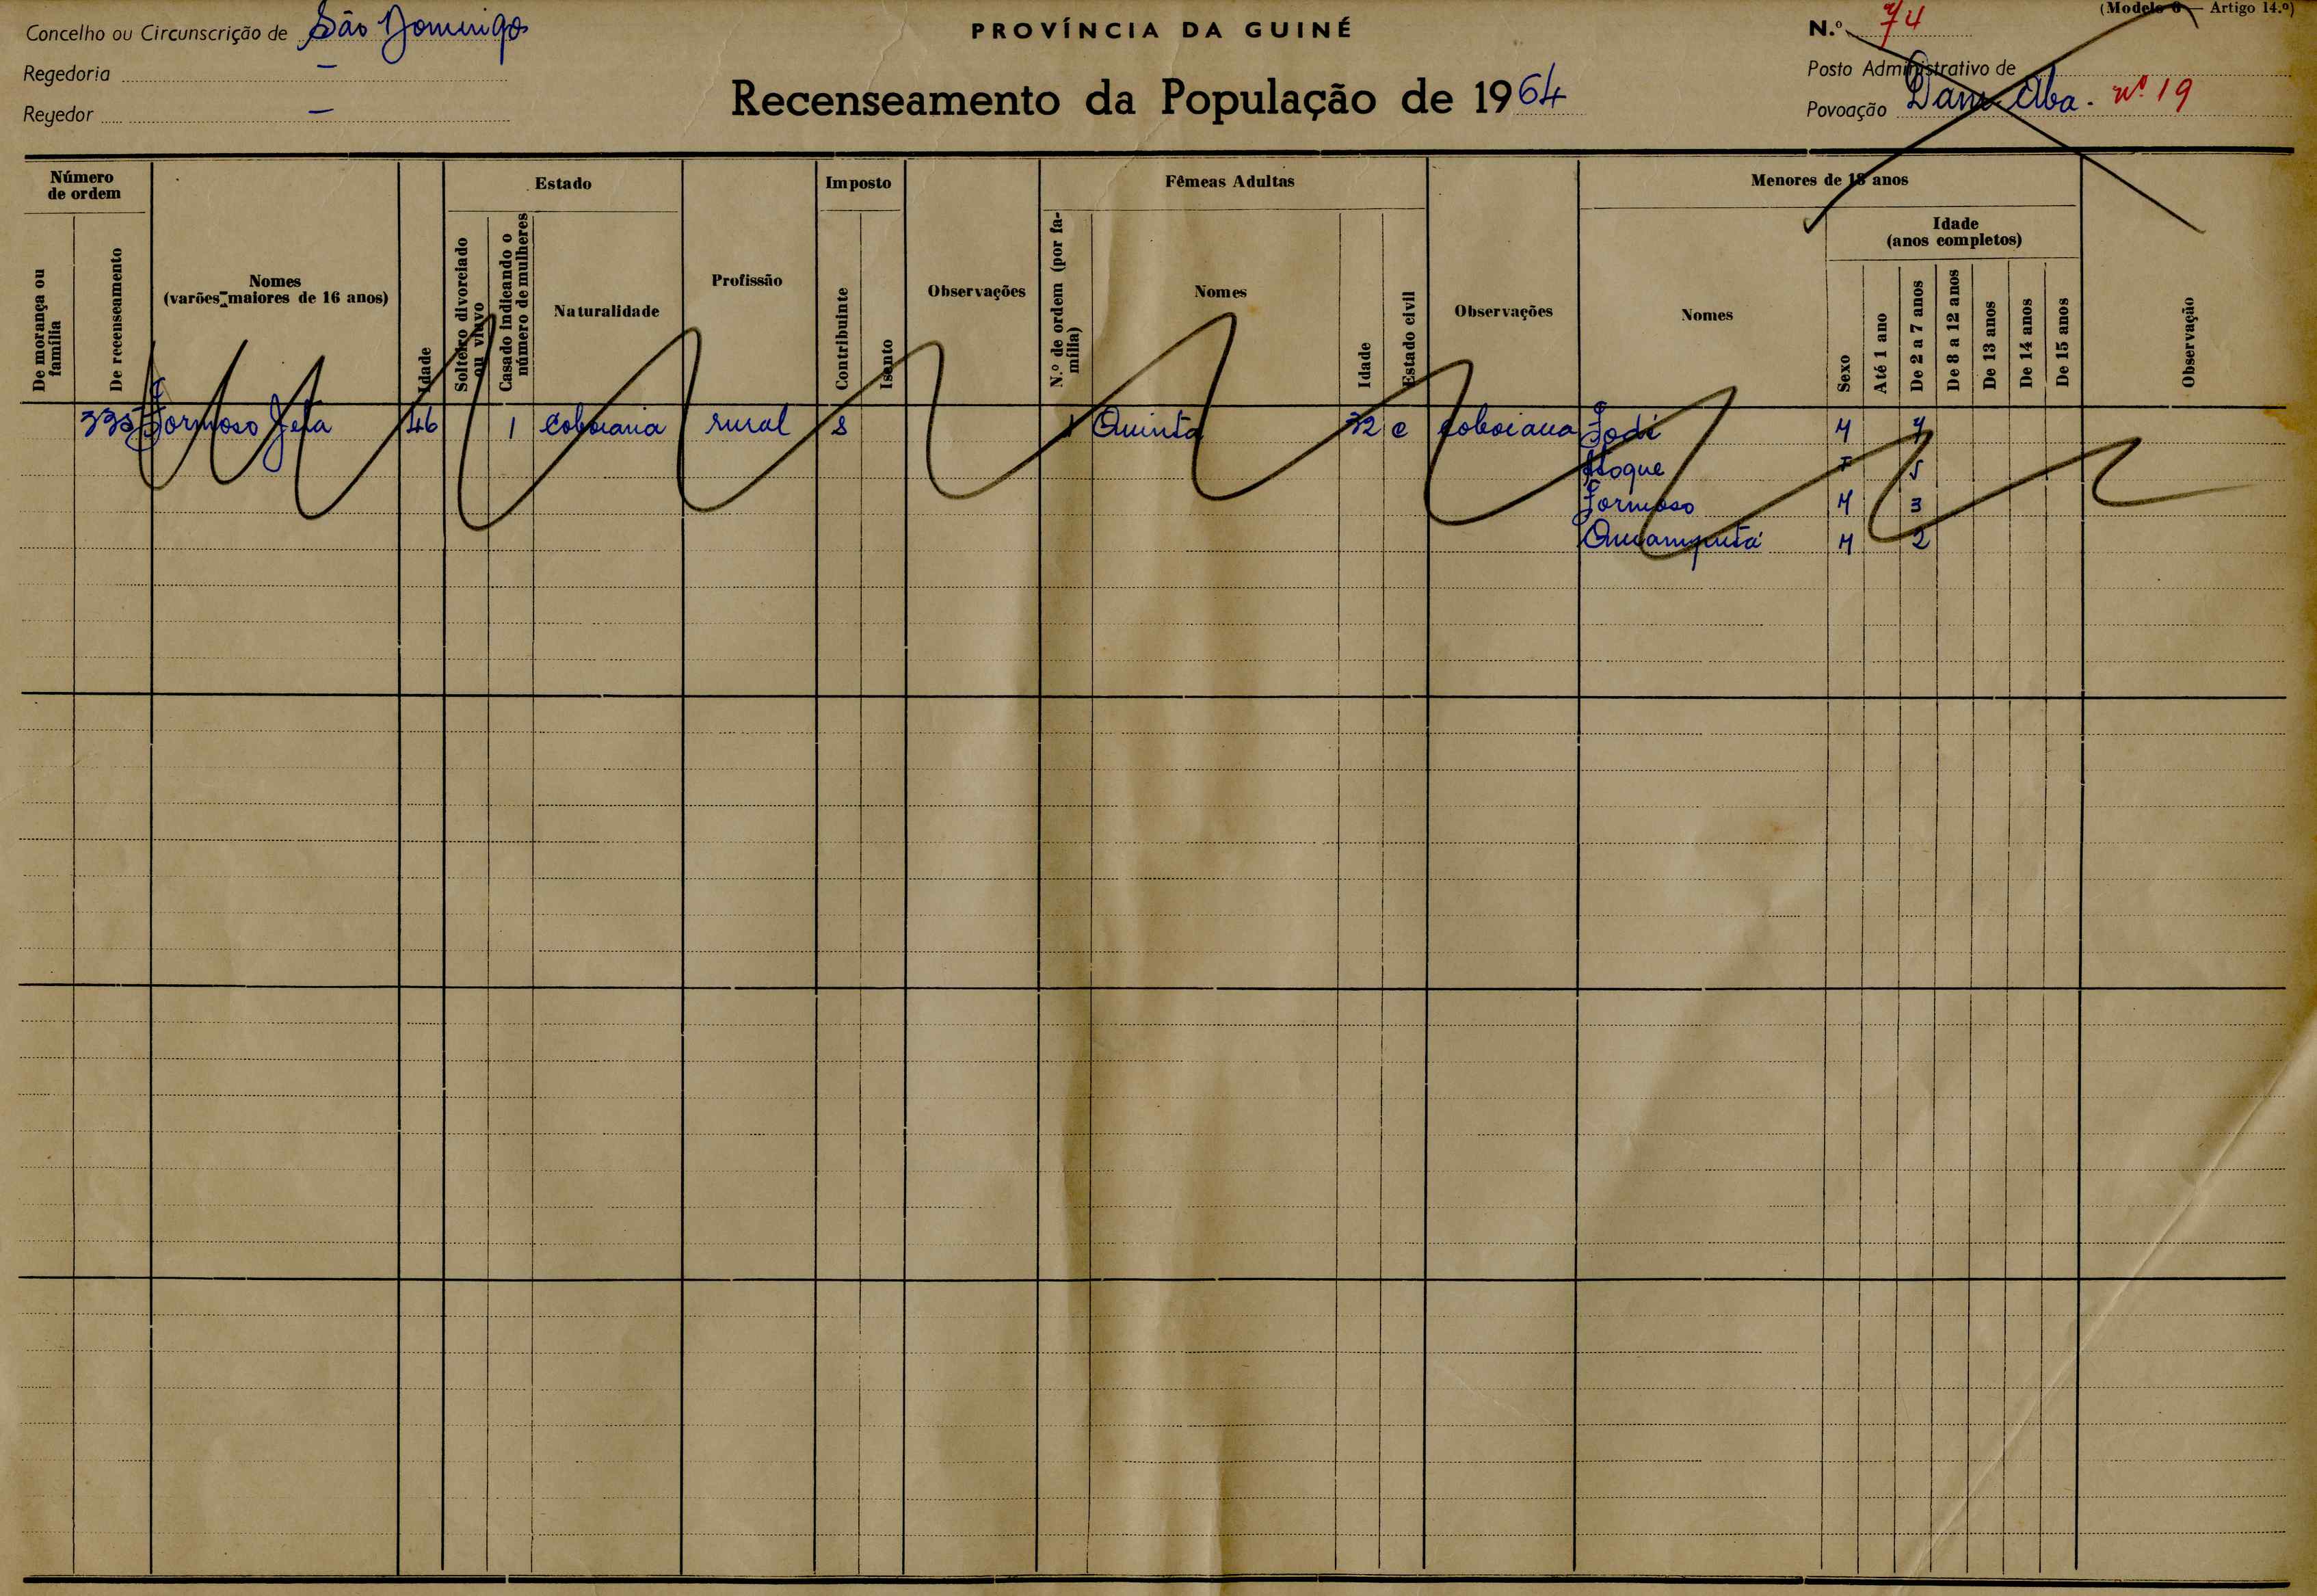 Concelho ou Circunscrição de São Domingos
Regedoria —
Regedor —
PROVÍNCIA DA GUINÉ
Recenseamento da População de 1964
(Modelo 6 — Artigo 14.º)
N.º 74
Posto Administrativo de
Povoação nº 19
Número de ordem
De morança ou família
De recenseamento
Nomes
(varões maiores de 16 anos)
Idade
Estado
Solteiro divorciado ou viuvo
Casado indicando o número de mulheres
Naturalidade
Profissão
Imposto
Contribuinte
Isento
Observações
Fêmeas Adultas
N.º de ordem (por família)
Nomes
Idade
Estado civil
Observações
Menores de 18 anos
Nomes
Sexo
Idade
(anos completos)
Até 1 ano
De 2 a 7 anos
De 8 a 12 anos
De 13 anos
De 14 anos
De 15 anos
Observação
335 Formoso 46 1 coboiana rural S 1 Quinta 32 c coboiana Jodi M 7
F 5
Formoso M 3
M 2